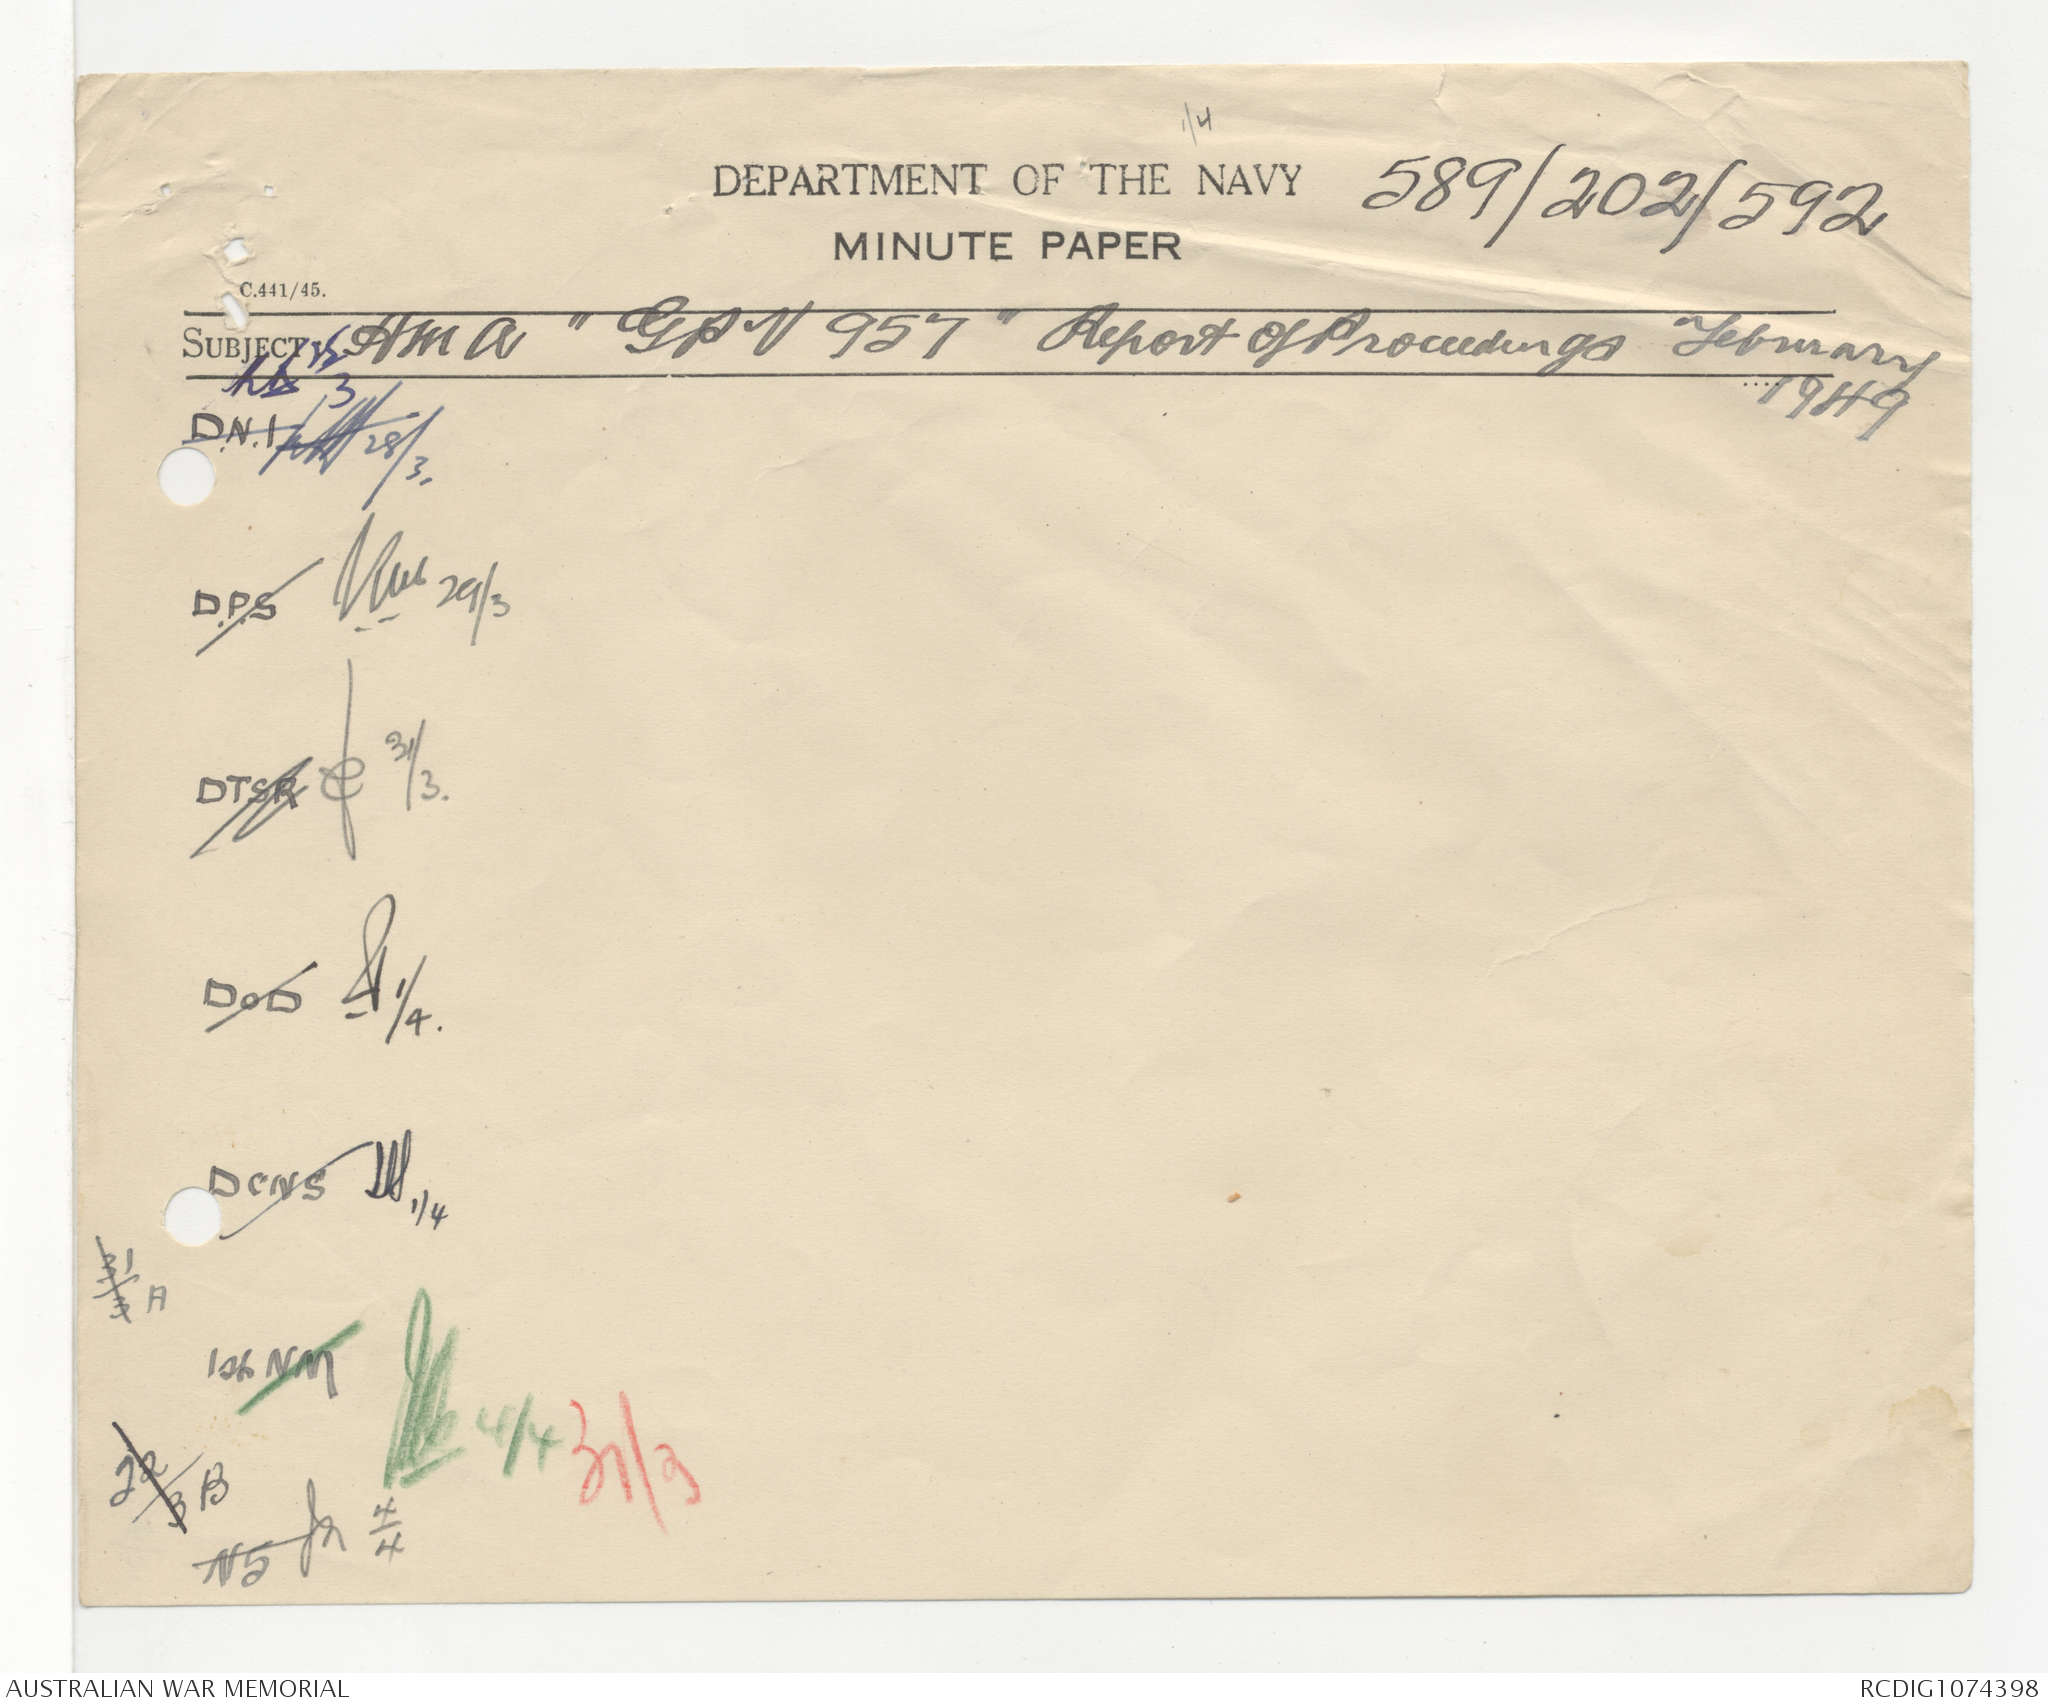 1/4
DEPARTMENT OF THE NAVY 589/202/592
MINUTE PAPER
C.441/45.
SUBJECT: HMA "GPV 957" Report of Proceedings February
1949
D.N.I 28/3.
D.P.S 29/3
DTSR 31/3.
DOD 1/4.
DCNS 1/4
31/3 A
1st NM 4/4 31/3
22/3 B
N5 4/4
AUSTRALIAN WAR MEMORIAL RCDIG1074398